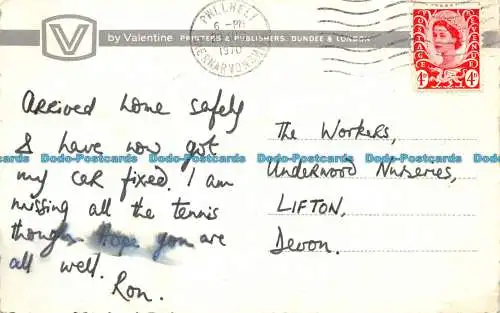 V
by Valentine PRINTERS & PUBLISHERS, DUNDEE & LONDON
PWLLHELI
6 - PM
1970
CAERNARVONSHIRE
4D 4D
Arrived home safely
& have now got
my car fixed. I am
missing all the tennis
though. Hope you are
all well.
Ron.
The Workers,
Underwood Nurseries,
LIFTON,
Devon.
Dodo-Postcards Dodo-Postcards Dodo-Postcards Dodo-Postcards